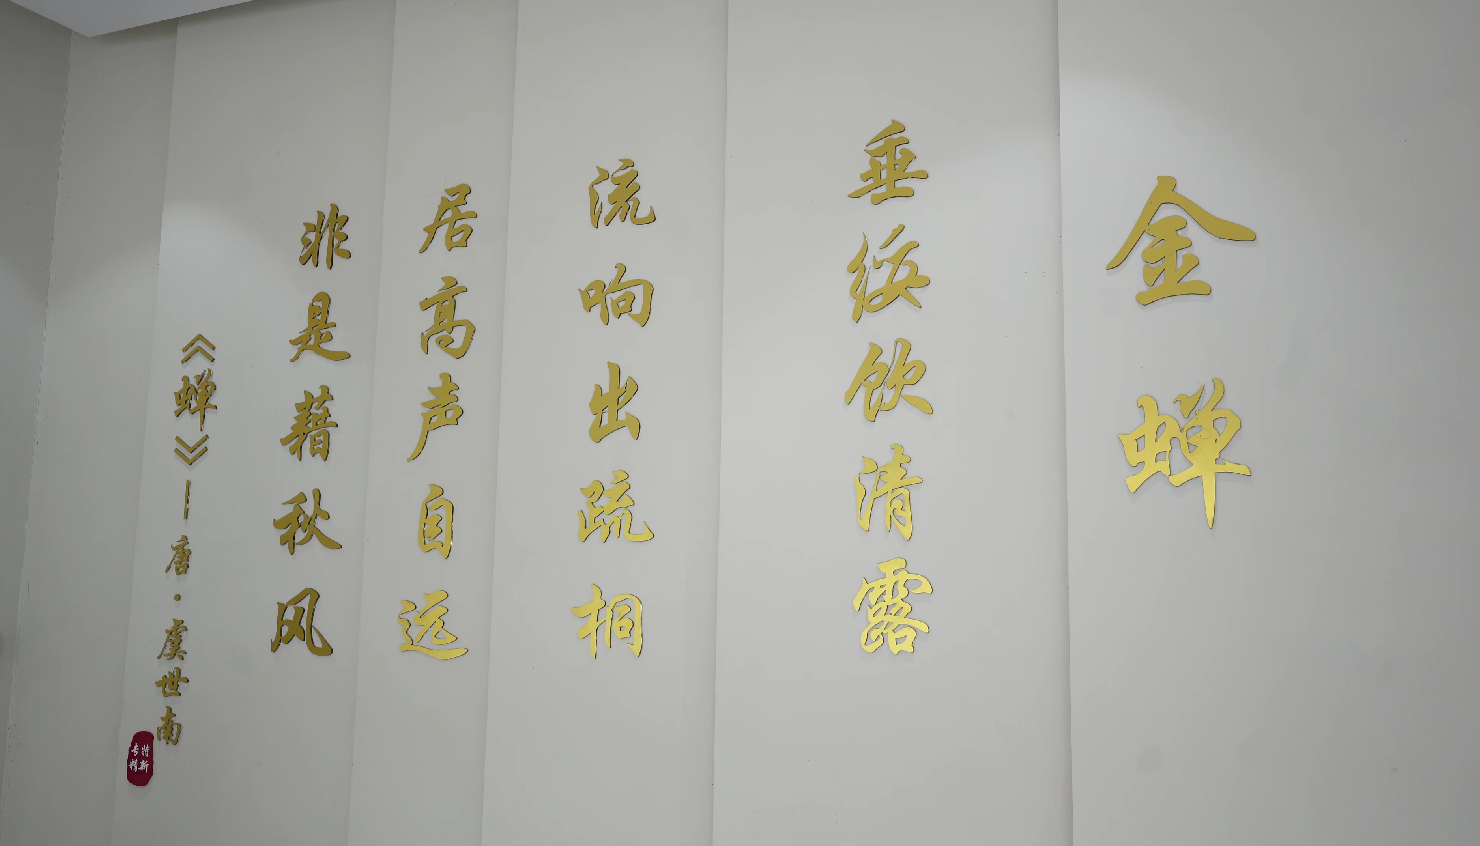 金蝉
垂绥饮清露
流响出疏桐
居高声自远
非是藉秋风
《蝉》—唐·虞世南
专精
特新